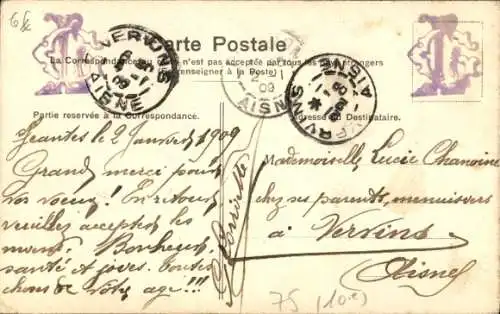 Carte Postale
La Correspondance au n'est pas acceptée par tous les pays étrangers
(renseigner à la Poste)
VERVINS
AISNE
2
09
AISNE
VERVINS
AISNE
Partie réservée à la Correspondance.
Adresse du Destinataire.
Jeantes le 2 Janvier 1909
Grand merci pour
vos voeux! En retour
veuillez accepter les
miens. Bonheur,
santé et joies. Toutes
choses de votre age!!!
Mademoiselle Lucie Chanoine
chez ses parents, menuisiers
à Vervins
(Aisne)
75 (10e)